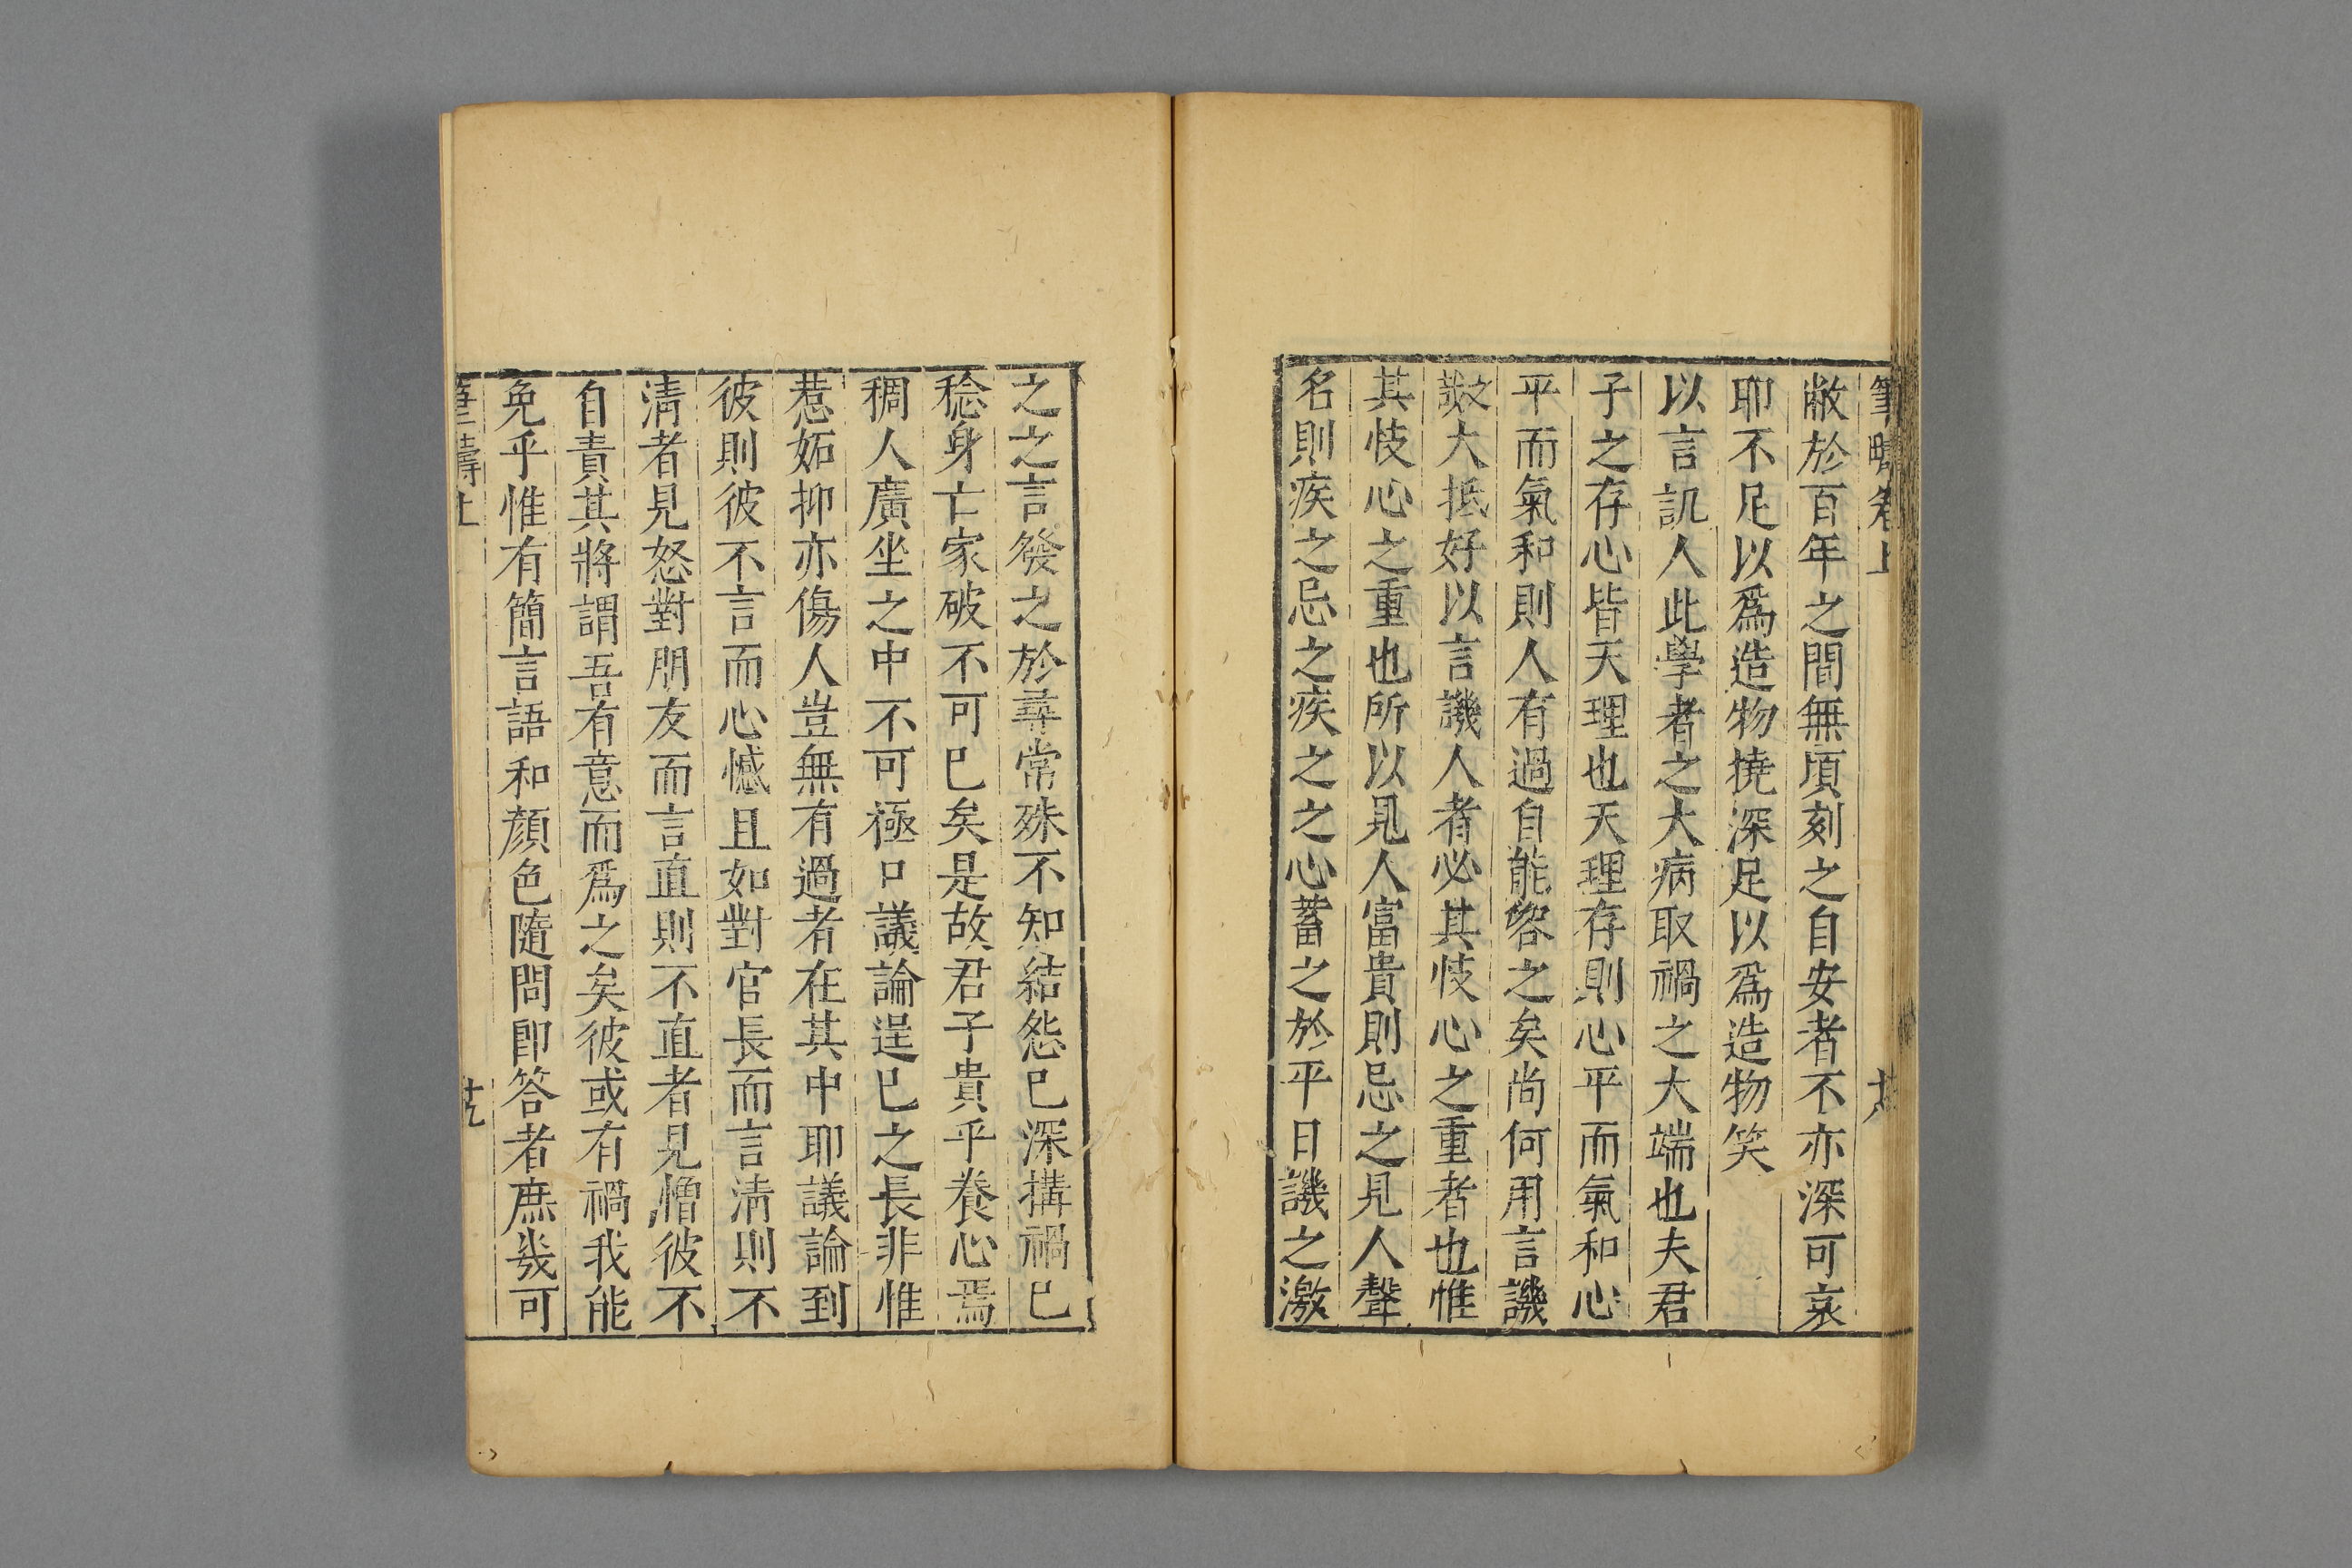 筆疇卷上
敝於百年之間無頃刻之自安者不亦深可哀
耶不足以爲造物撓深足以爲造物笑
以言訊人此學者之大病取禍之大端也夫君
子之存心皆天理也天理存則心平而氣和心
平而氣和則人有過自能容之矣尚何用言譏
之哉大抵好以言譏人者必其忮心之重者也惟
其忮心之重也所以見人富貴則忌之見人聲
名則疾之忌之疾之之心蓄之於平日譏之激
之之言發之於尋常殊不知結怨已深搆禍已
稔身亡家破不可已矣是故君子貴乎養心焉
稠人廣坐之中不可極口議論逞已之長非惟
惹妬抑亦傷人豈無有過者在其中耶議論到
彼則彼不言而心憾且如對官長而言淸則不
淸者見怒對朋友而言直則不直者見憎彼不
自責其將謂吾有意而爲之矣彼或有禍我能
免乎惟有簡言語和顏色隨問卽答者庶幾可
筆疇上